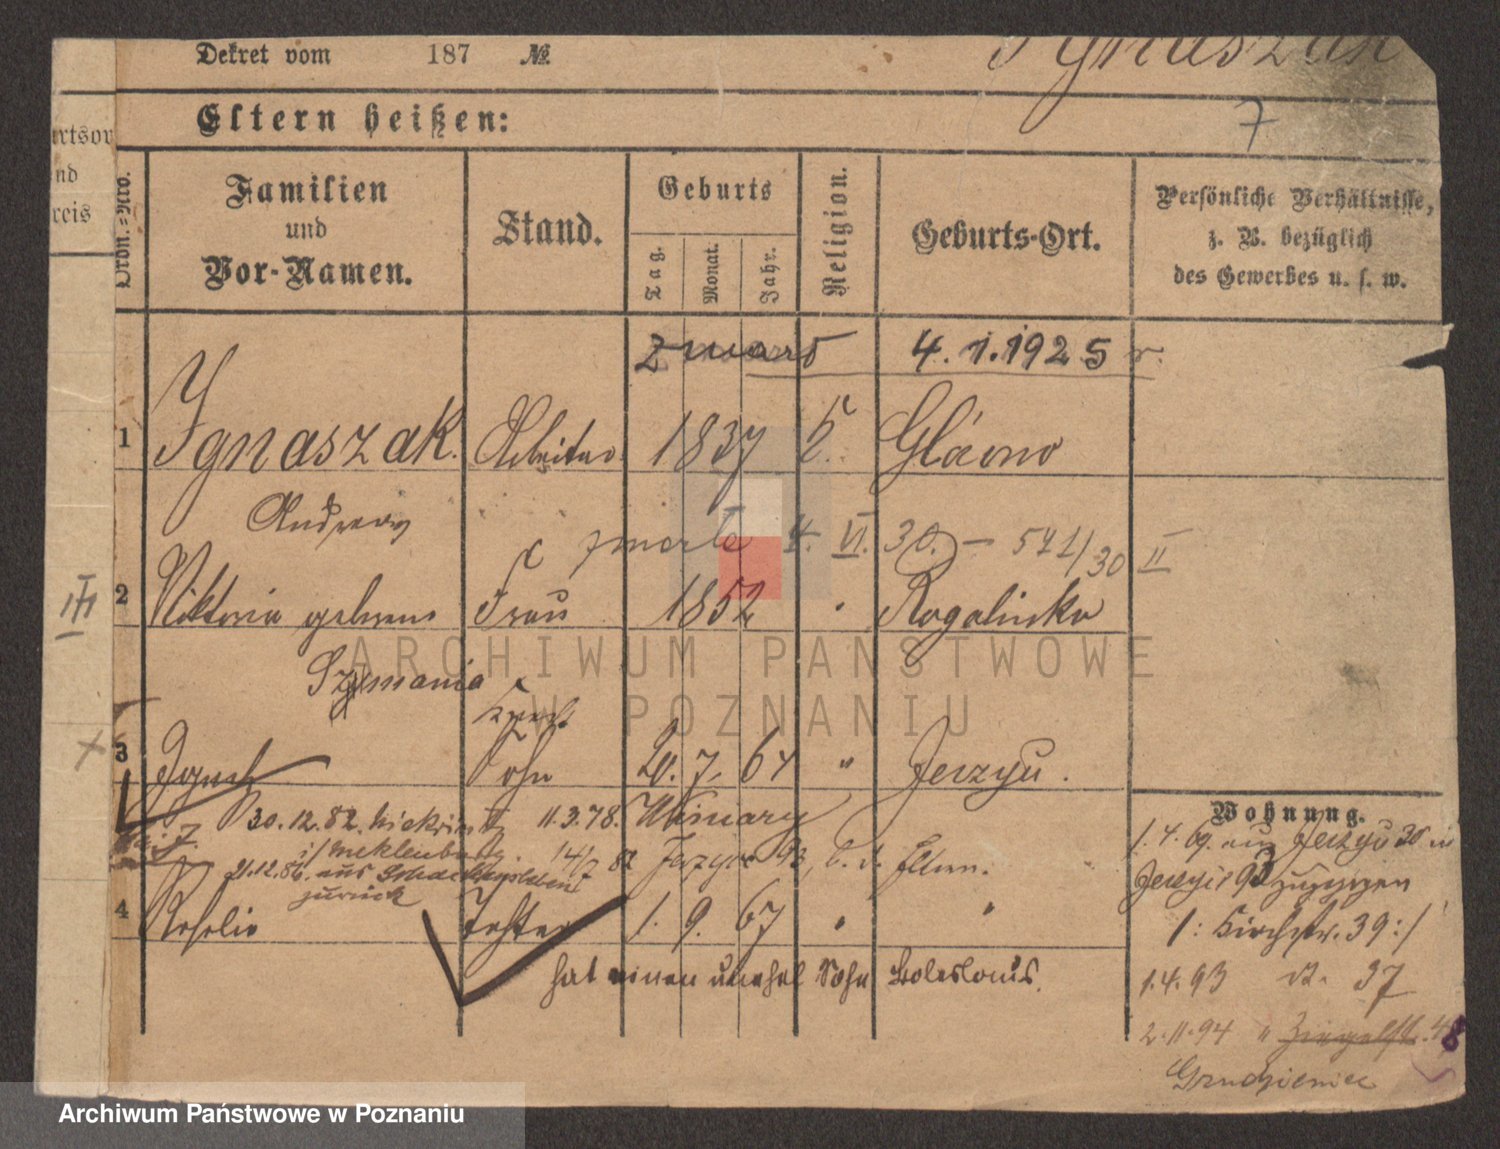 Dekret vom 187 №
Ignaszak
7
Eltern heißen:
Ordn.-Nro.
Familien
und
Vor-Namen.
Stand.
Geburts
Tag.
Monat.
Jahr.
Religion.
Geburts-Ort.
Persönliche Verhältnisse,
z. B. bezüglich
des Gewerbes u. s. w.
nd
reis
zmarł 4.1.1925 r.
1 Ignaszak Arbeiter 1837 k. Główno
Andreas
zmarła 4. VI. 30. — 571/30 II
III
2 Viktoria geborene Frau 1852 " Rogalinko
Szymania
3 Ignatz Sohn 20. 7. 64 " Jerzyce.
30.12.82. 11.3.78.
14/7 82 Jerzyce 93, b. d. Eltern.
21.12.86. aus
zurück
4 Rosalie Tochter 1. 9. 67 " "
hat einen unehel Sohn Boleslaus.
Wohnung.
1.4.69. aus Jerzyce 30 in
Jerzyce 93 zugezogen
/: Kirchstr. 39 :/
1.4.93 37
2.11.94 " Ziegelstr. 48
ARCHIWUM PAŃSTWOWE
W POZNANIU
Archiwum Państwowe w Poznaniu